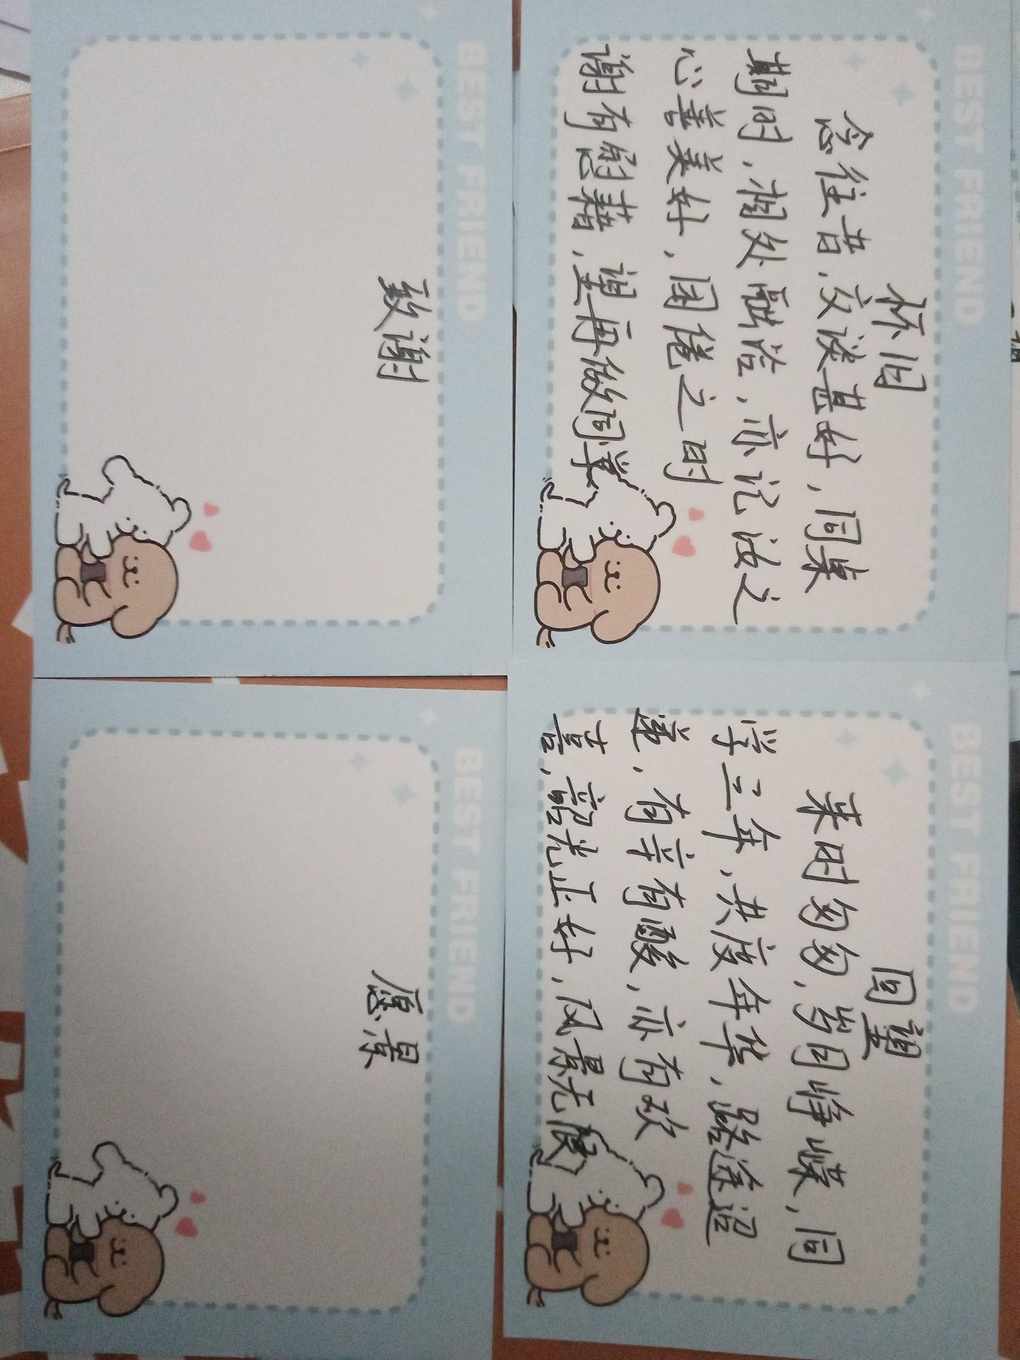 BEST FRIEND
怀旧
念往昔,交谈甚好,同桌
期时,相处融洽,亦记汝之
心善美好,困倦之时
谢有慰藉,望再做同学
BEST FRIEND
回望
来时匆匆,岁月峥嵘,同
学三年,共度年华,路途迢
递,有辛有酸,亦有欢
喜,韶光正好,风景无限
BEST FRIEND
致谢
BEST FRIEND
愿景